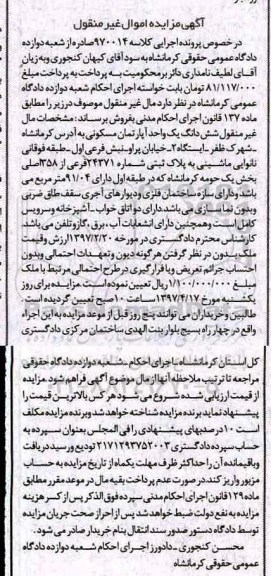 آگهی مزایده اموال غیر منقول
در خصوص پرونده اجرایی کلاسه ۹۷۰۰۱۴ صادره از شعبه دوازده
دادگاه عمومی حقوقی کرمانشاه به سود آقای کیهان کنجوری و به زیان
آقای لطیف نامداری دائر بر محکومیت به پرداخت به پرداخت مبلغ
۸۱/۱۱۷/۰۰۰ تومان بابت خواسته اجرای احکام شعبه دوازده دادگاه
عمومی کرمانشاه در نظر دارد مال غیر منقول موصوف در زیر را مطابق
ماده ۱۳۷ قانون اجرای احکام مدنی بفروش برساند : مشخصات مال
غیر منقول شش دانگ یک واحد آپارتمان مسکونی به آدرس کرمانشاه
ـ شهرک ظفر ـ ایستگاه ۲ـ خیابان پرلو-نبش فرعی اول ـ طبقه فوقانی
نانوایی ماشینی به پلاک ثبتی شماره ۲۴۳۷۱ فرعی از ۳۵۸ اصلی
بخش یک حومه کرمانشاه که در طبقه اول دارای ۹۱/۰۴ متر مربع می
باشد و دارای سازه ساختمان فلزی و دیوارهای آجری سقف طاق ضربی
وبدون نما سازی می باشد. دارای دو اتاق خواب ـ آشپزخانه و سرویس
کامل است و همچنین دارای انشعابات آب ، برق ،گاز و تلفن می باشد.
کارشناس محترم دادگستری در مورخه ۱۳۹۷/۲/۲۰ ارزش و قیمت
ملک بدون در نظر گرفتن هر گونه دیون و تعهدات احتمالی و بدون
احتساب جرائم تعریض و یا قرار گیری در طرح احتمالی مرتبط با ملک
مبلغ ۱/۱۰۰/۰۰۰/۰۰۰ ریال تعیین نموده است. مزایده برای روز
یکشنبه مورخ ۱۳۹۷/۴/۱۷ ساعت ۱۰ صبح تعیین گردیده است.
طالبین و خریداران می توانند پنج روز قبل از موعد مزایده به این اجراء
واقع در چهار راه بسیج بلوار بنت الهدی ساختمان مرکزی دادگستری
کل استان کرمانشاه ـ اجرای احکام ـ شعبه دوازده دادگاه حقوقی
مراجعه تا ترتیب ملاحظه آنها از مال موضوع آگهی فراهم شود. مزایده
از قیمت ارزیابی شده شروع می شود هر کس بالاترین قیمت را
پیشنهاد نماید برنده مزایده شناخته خواهد شد و برنده مزایده مکلف
است ۱۰ درصد بهای پیشنهادی را فی المجلس بعنوان سپرده به
حساب سپرده دادگستری ۲۱۷۱۲۹۳۷۵۲۰۰۳ تودیع و رسید دریافت
وباقیمانده آن را حداکثر ظرف مهلت یکماه از تاریخ مزایده به حساب
مزبور واریز کند. در صورت عدم پرداخت بقیه مال در موعد مقرر مطابق
ماده ۱۲۹ قانون اجرای احکام مدنی سپرده فوق الذکر پس از کسر هزینه
مزایده به نفع دولت ضبط خواهد شد پس از احراز صحت جریان مزایده
توسط دادگاه دستور صدور سند انتقال بنام خریدار صادر می شود.
محسن کنجوری ـ دادورز اجرای احکام شعبه دوازده دادگاه
عمومی حقوقی کرمانشاه